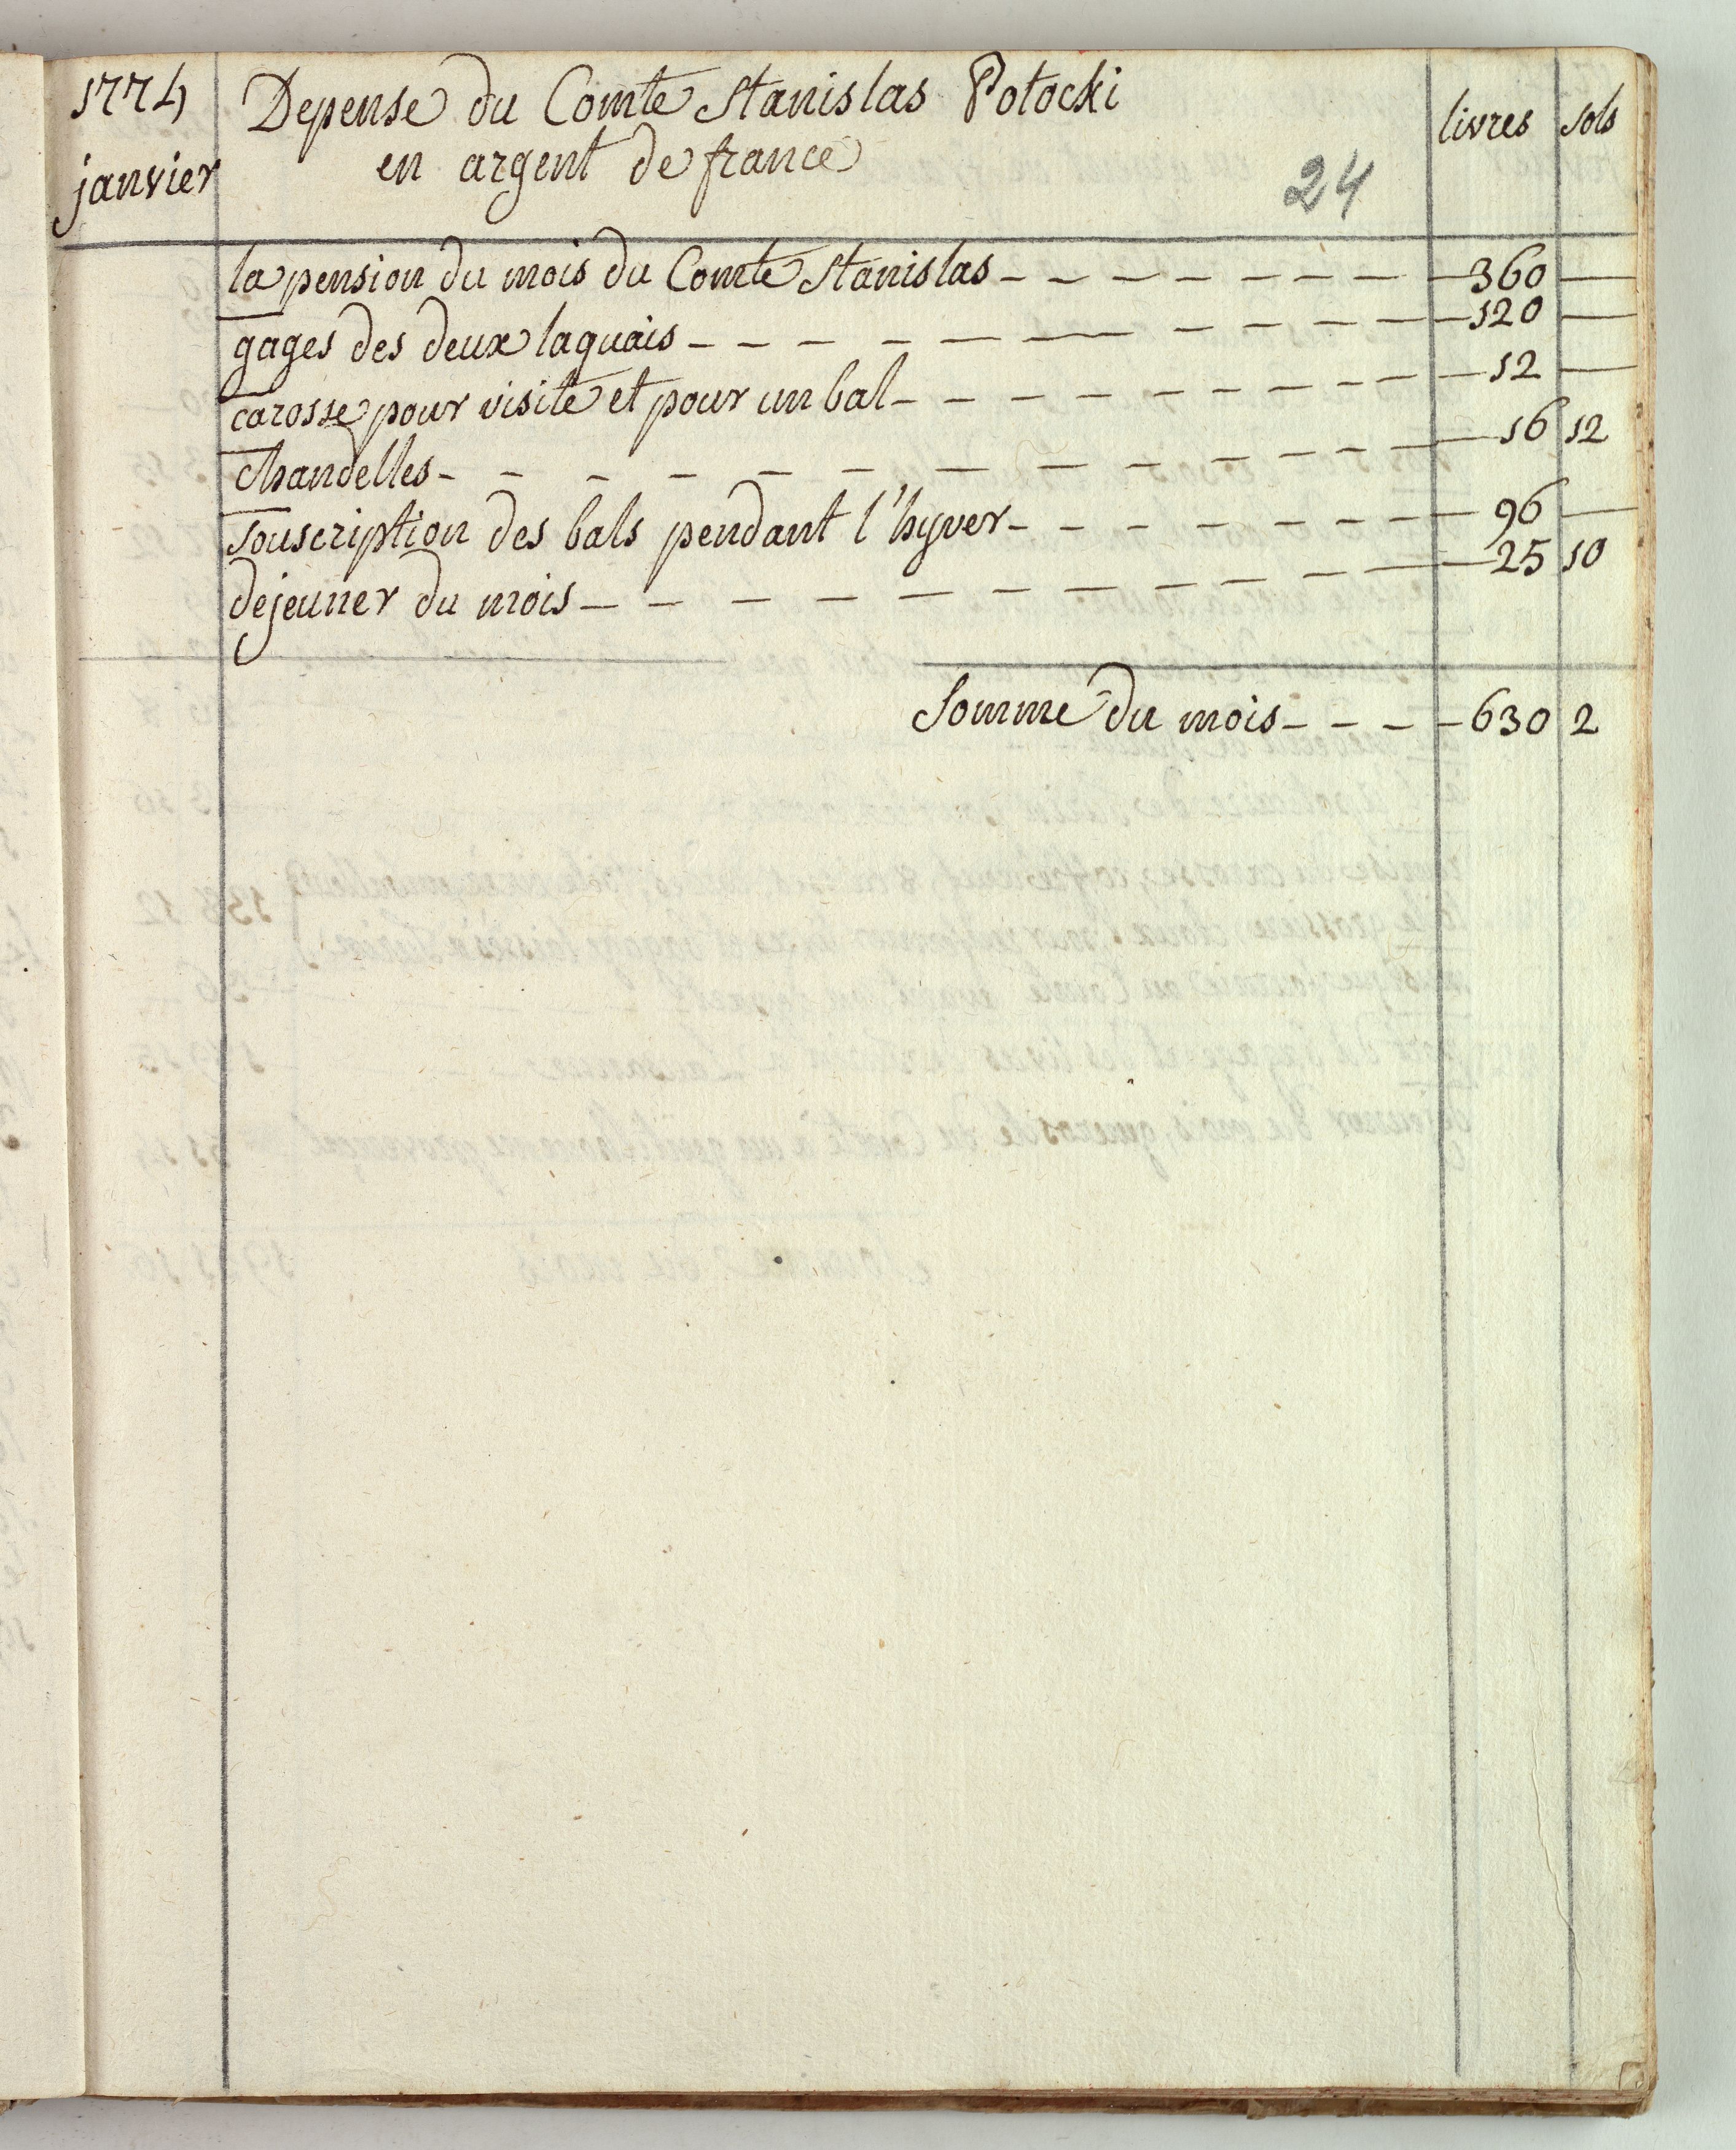 1774 Depense du Comte Stanislas Potocki livres sols
janvier en argent de france 24
la pension du mois du Comte Stanislas - - - - - - - - 360 —
gages des deux laquais - - - - - - - - - 120 —
carosse pour visite et pour un bal - - - - - - - - - 12 —
chandelles - - - - - - - - - - - - 16 12
souscription des bals pendant l'hyver - - - - - - - 96 —
dejeuner du mois - - - - - - - - - - - 25 10
Somme du mois - - - - 630 2